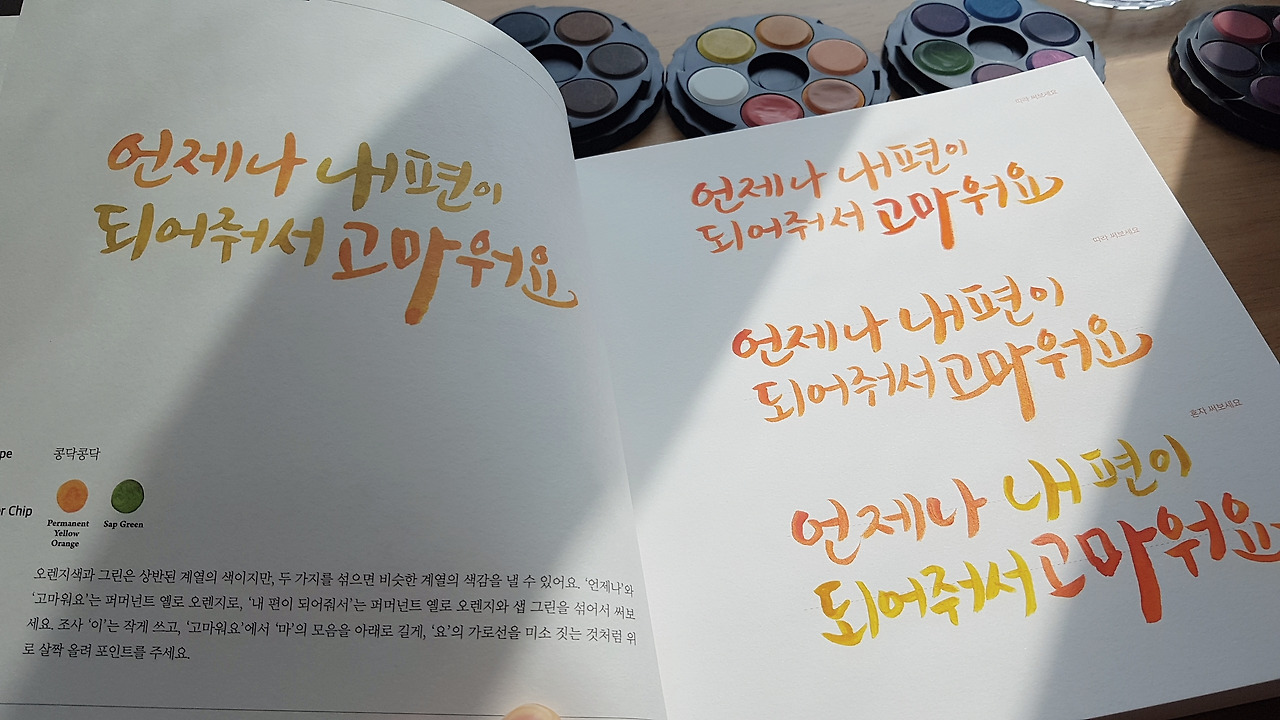 언제나 내 편이
되어줘서 고마워요
pe 콩닥콩닥
r Chip
Permanent
Yellow
Orange
Sap Green
오렌지색과 그린은 상반된 계열의 색이지만, 두 가지를 섞으면 비슷한 계열의 색감을 낼 수 있어요. ‘언제나’와
‘고마워요’는 퍼머넌트 옐로 오렌지로, ‘내 편이 되어줘서’는 퍼머넌트 옐로 오렌지와 샙 그린을 섞어서 써보
세요. 조사 ‘이’는 작게 쓰고, ‘고마워요’에서 ‘마’의 모음을 아래로 길게, ‘요’의 가로선을 미소 짓는 것처럼 위
로 살짝 올려 포인트를 주세요.
따라 써보세요
언제나 내 편이
되어줘서 고마워요
따라 써보세요
언제나 내 편이
되어줘서 고마워요
혼자 써보세요
언제나 내 편이
되어줘서 고마워요